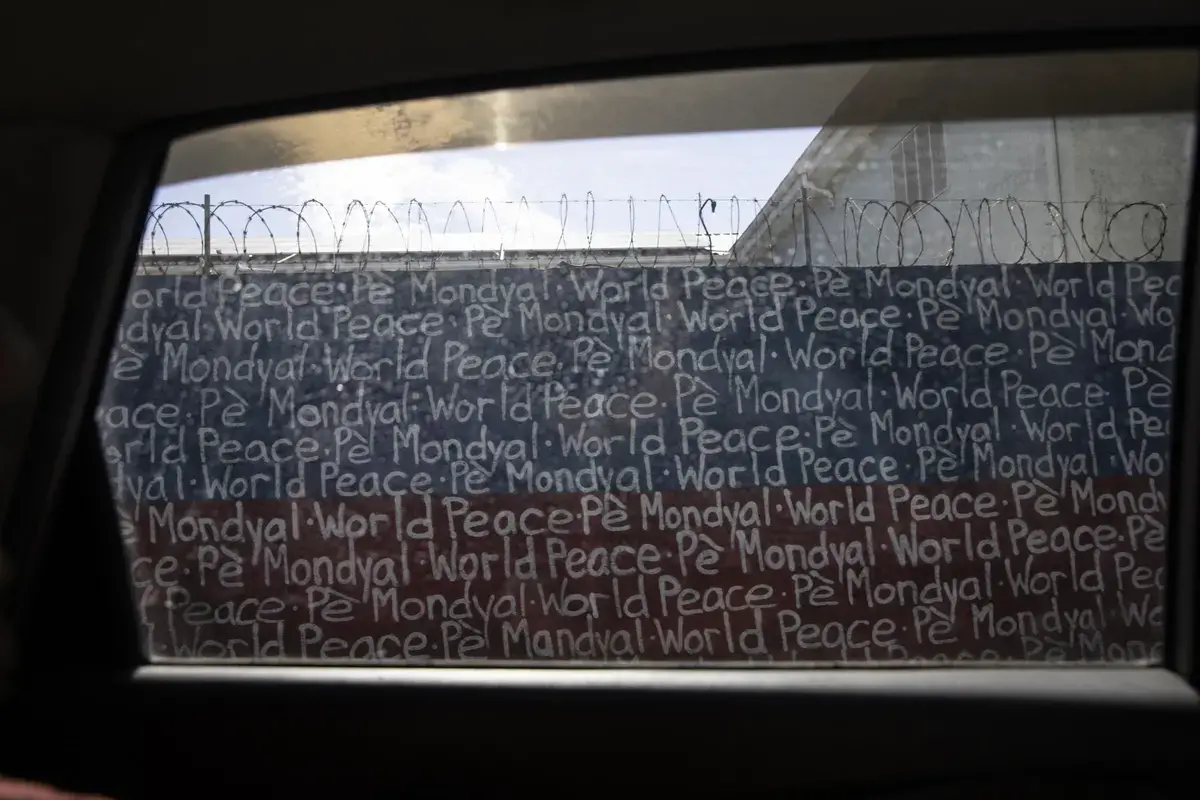 orld Peace · Pè Mondyal · World Peace · Pè Mondyal · World Pec
dyal · World Peace · Pè Mondyal · World Peace · Pè Mondyal · Wo
è Mondyal · World Peace · Pè Mondyal · World Peace · Pè Mond
ace · Pè Mondyal · World Peace · Pè Mondyal · World Peace · Pè
orld Peace · Pè Mondyal · World Peace · Pè Mondyal · World Pe
dyal · World Peace · Pè Mondyal · World Peace · Pè Mondyal · Wo
è Mondyal · World Peace · Pè Mondyal · World Peace · Pè Mondy
ce · Pè Mondyal · World Peace · Pè Mondyal · World Peace · Pè
Peace · Pè Mondyal · World Peace · Pè Mondyal · World Pec
World Peace · Pè Mandyal · World Peace · Pè Mondyal · Wo